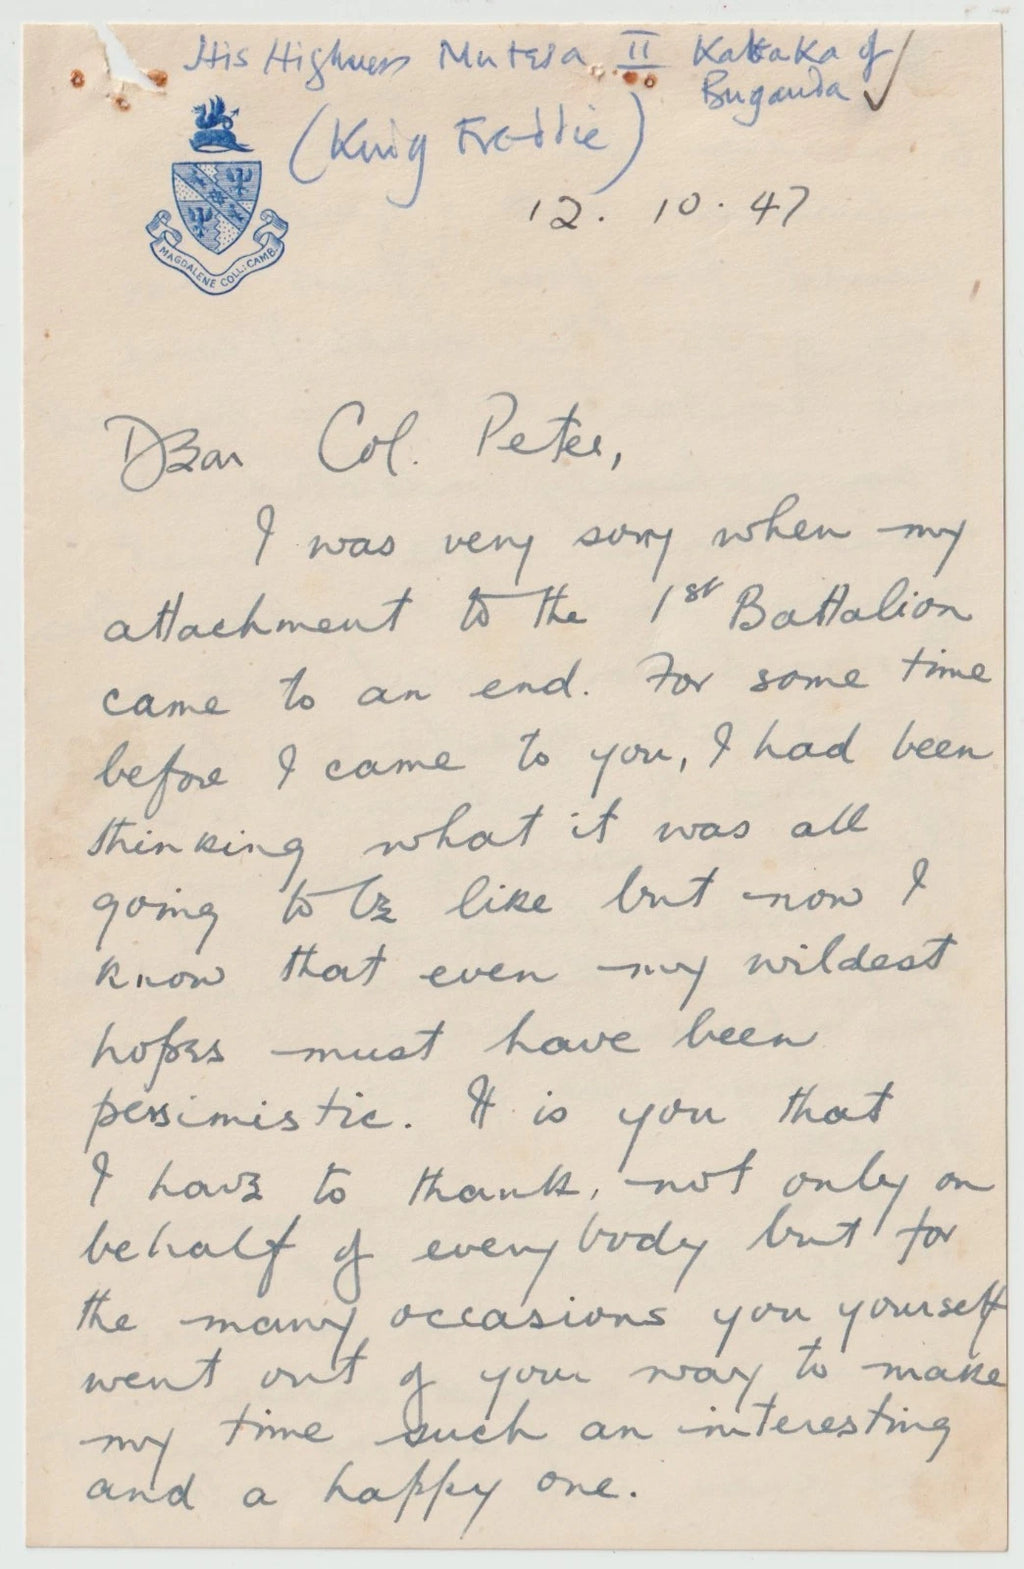 His Highness Mutesa II Kabaka of
Buganda
(King Freddie)
MAGDALENE COLL: CAMB.
12. 10. 47
Dear Col. Peter,
I was very sorry when my
attachment to the 1st Battalion
came to an end. For some time
before I came to you, I had been
thinking what it was all
going to be like but now I
know that even my wildest
hopes must have been
pessimistic. It is you that
I have to thank, not only on
behalf of everybody but for
the many occasions you yourself
went out of your way to make
my time such an interesting
and a happy one.